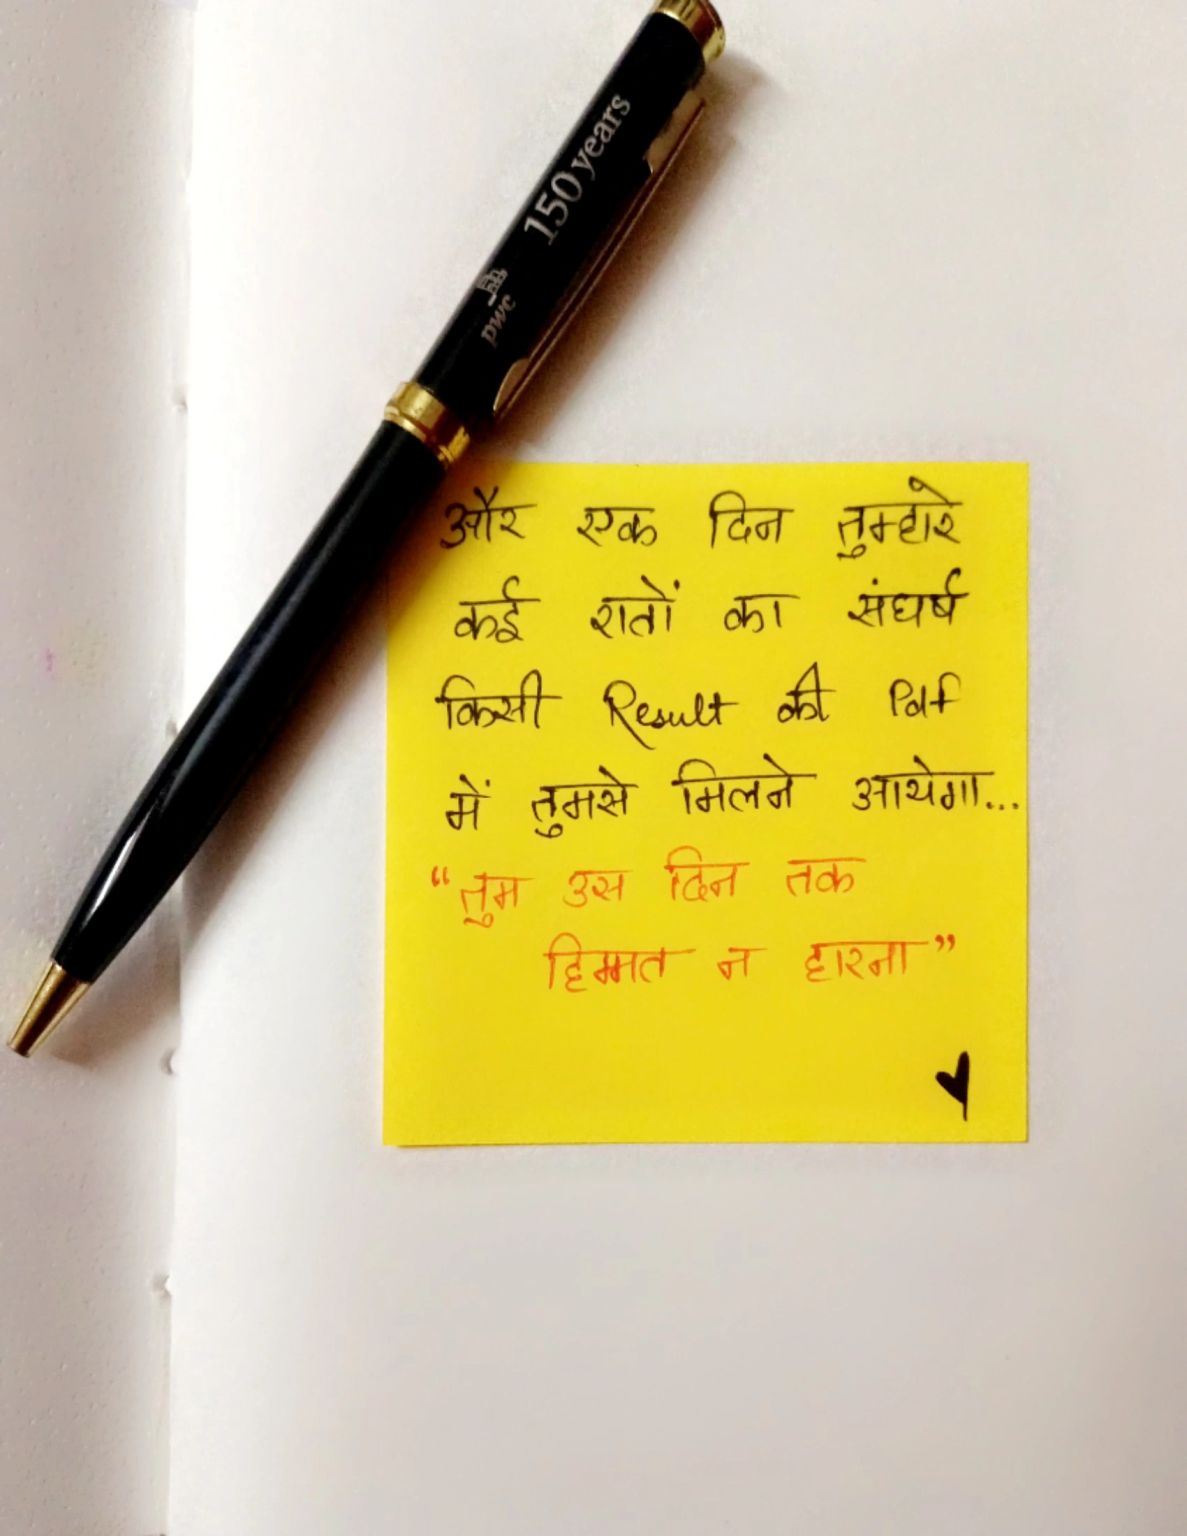 150 years
pwc
और एक दिन तुम्हारे
कई रातों का संघर्ष
किसी Result की Pdf
में तुमसे मिलने आयेगा...
“तुम उस दिन तक
हिम्मत न हारना”